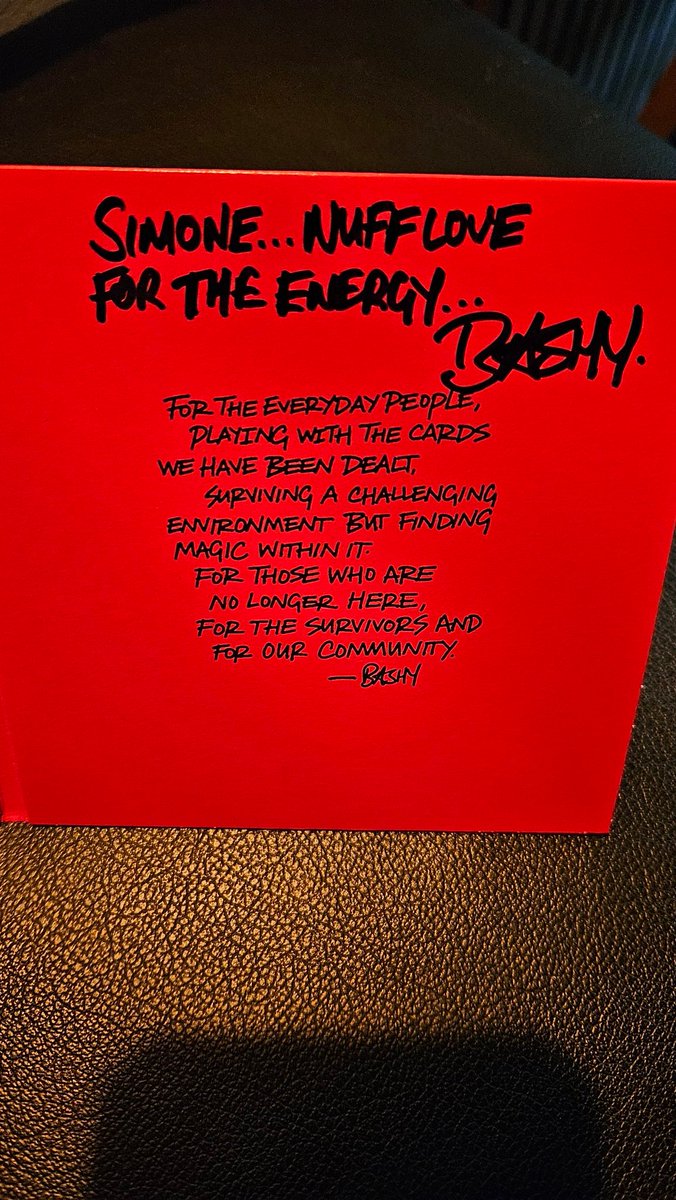 SIMONE... NUFF LOVE
FOR THE ENERGY...
BASHY.
FOR THE EVERYDAY PEOPLE,
PLAYING WITH THE CARDS
WE HAVE BEEN DEALT,
SURVIVING A CHALLENGING
ENVIRONMENT BUT FINDING
MAGIC WITHIN IT.
FOR THOSE WHO ARE
NO LONGER HERE,
FOR THE SURVIVORS AND
FOR OUR COMMUNITY.
— BASHY